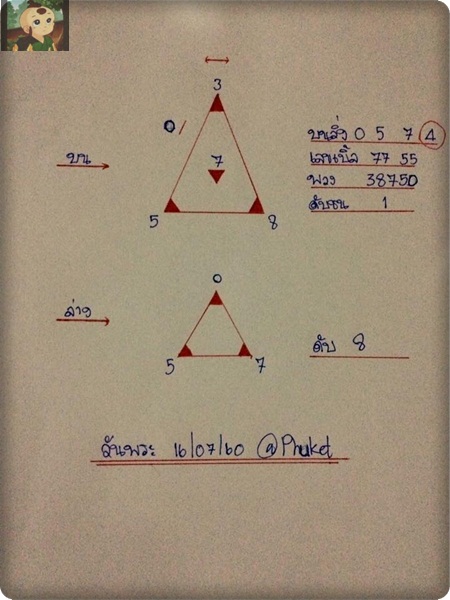 3
0/
บน
7
5
8
บนสิ่ง 0 5 7 4
เลขเบิ้ล 77 55
พวง 38750
ดับบน 1
ล่าง
0
5
7
ดับ 8
วันพระ 16/07/60 @Phuket